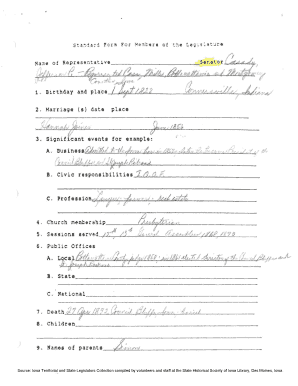 Standard Form For Members of the Legislature
Name of Representative Senator Casady
Jefferson P. - Represented Cass, Mills, Pottawattamie and Montgomery
Counties
1. Birthday and place 1 Sept 1828 Connersville, Indiana
2. Marriage (s) date place
Hannah Joiner Jan. 1856
3. Significant events for example:
A. Business
Council Bluffs and St Joseph Railroad
B. Civic responsibilities I.O.O.F.
C. Profession Lawyer, farming, real estate
4. Church membership Presbyterian
5. Sessions served 12th, 13th General Assemblies 1868, 1870
6. Public Offices
A. Local
& St Joseph Railroad
B. State
C. National
7. Death 27 Apr 1892 Council Bluffs, Iowa
8. Children
9. Names of parents Simon
Source: Iowa Territorial and State Legislators Collection compiled by volunteers and staff at the State Historical Society of Iowa Library, Des Moines, Iowa.